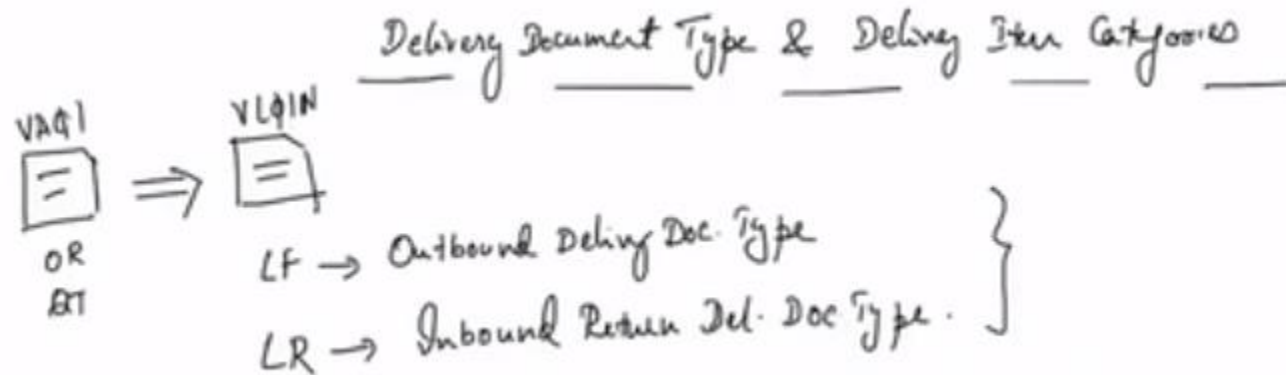 Delivery Document Type & Delivey Item Categories
VA01 ⇒ VL01N
OR
LF → Outbound Delivy Doc. Type
LR → Inbound Return Del. Doc Type.